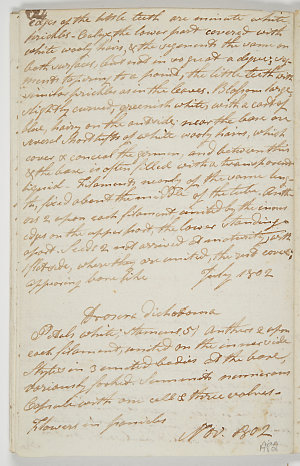 edges of the little teeth are minute white
prickles. Calyx the lower part covered with
white wooly hairs, & the segments the same on
both surfaces, but not in so great a degree; seg
ments tapering to a point, the little teeth with
similar prickles as in the leaves. Blossom large
slightly curved, greenish white, with a cast of
blue, hairy on the outside; near the base are
several short tufts of white wooly hairs, which
cover & conceal the germen, and between this
& the base is often filled with a transparent
liquid. Filaments nearly of the same leng
th, fixed about the middle of the tube. Anth
ers 2 upon each filament united by the inner
edges on the upper part, the lower standing
apart. Seeds 2 not arrived at maturity, with
flat side, where they are united, the rest convex,
appearing bone like
July 1802
Drosera dichotoma
Petals white; stamens 5; anthers 2 upon
each filament, united on the inner side
Styles in 3 united bodies at the base,
variously forked. Summits numerous
Capsule with one cell & three valves.
Flowers in panicles
Nov. 1802